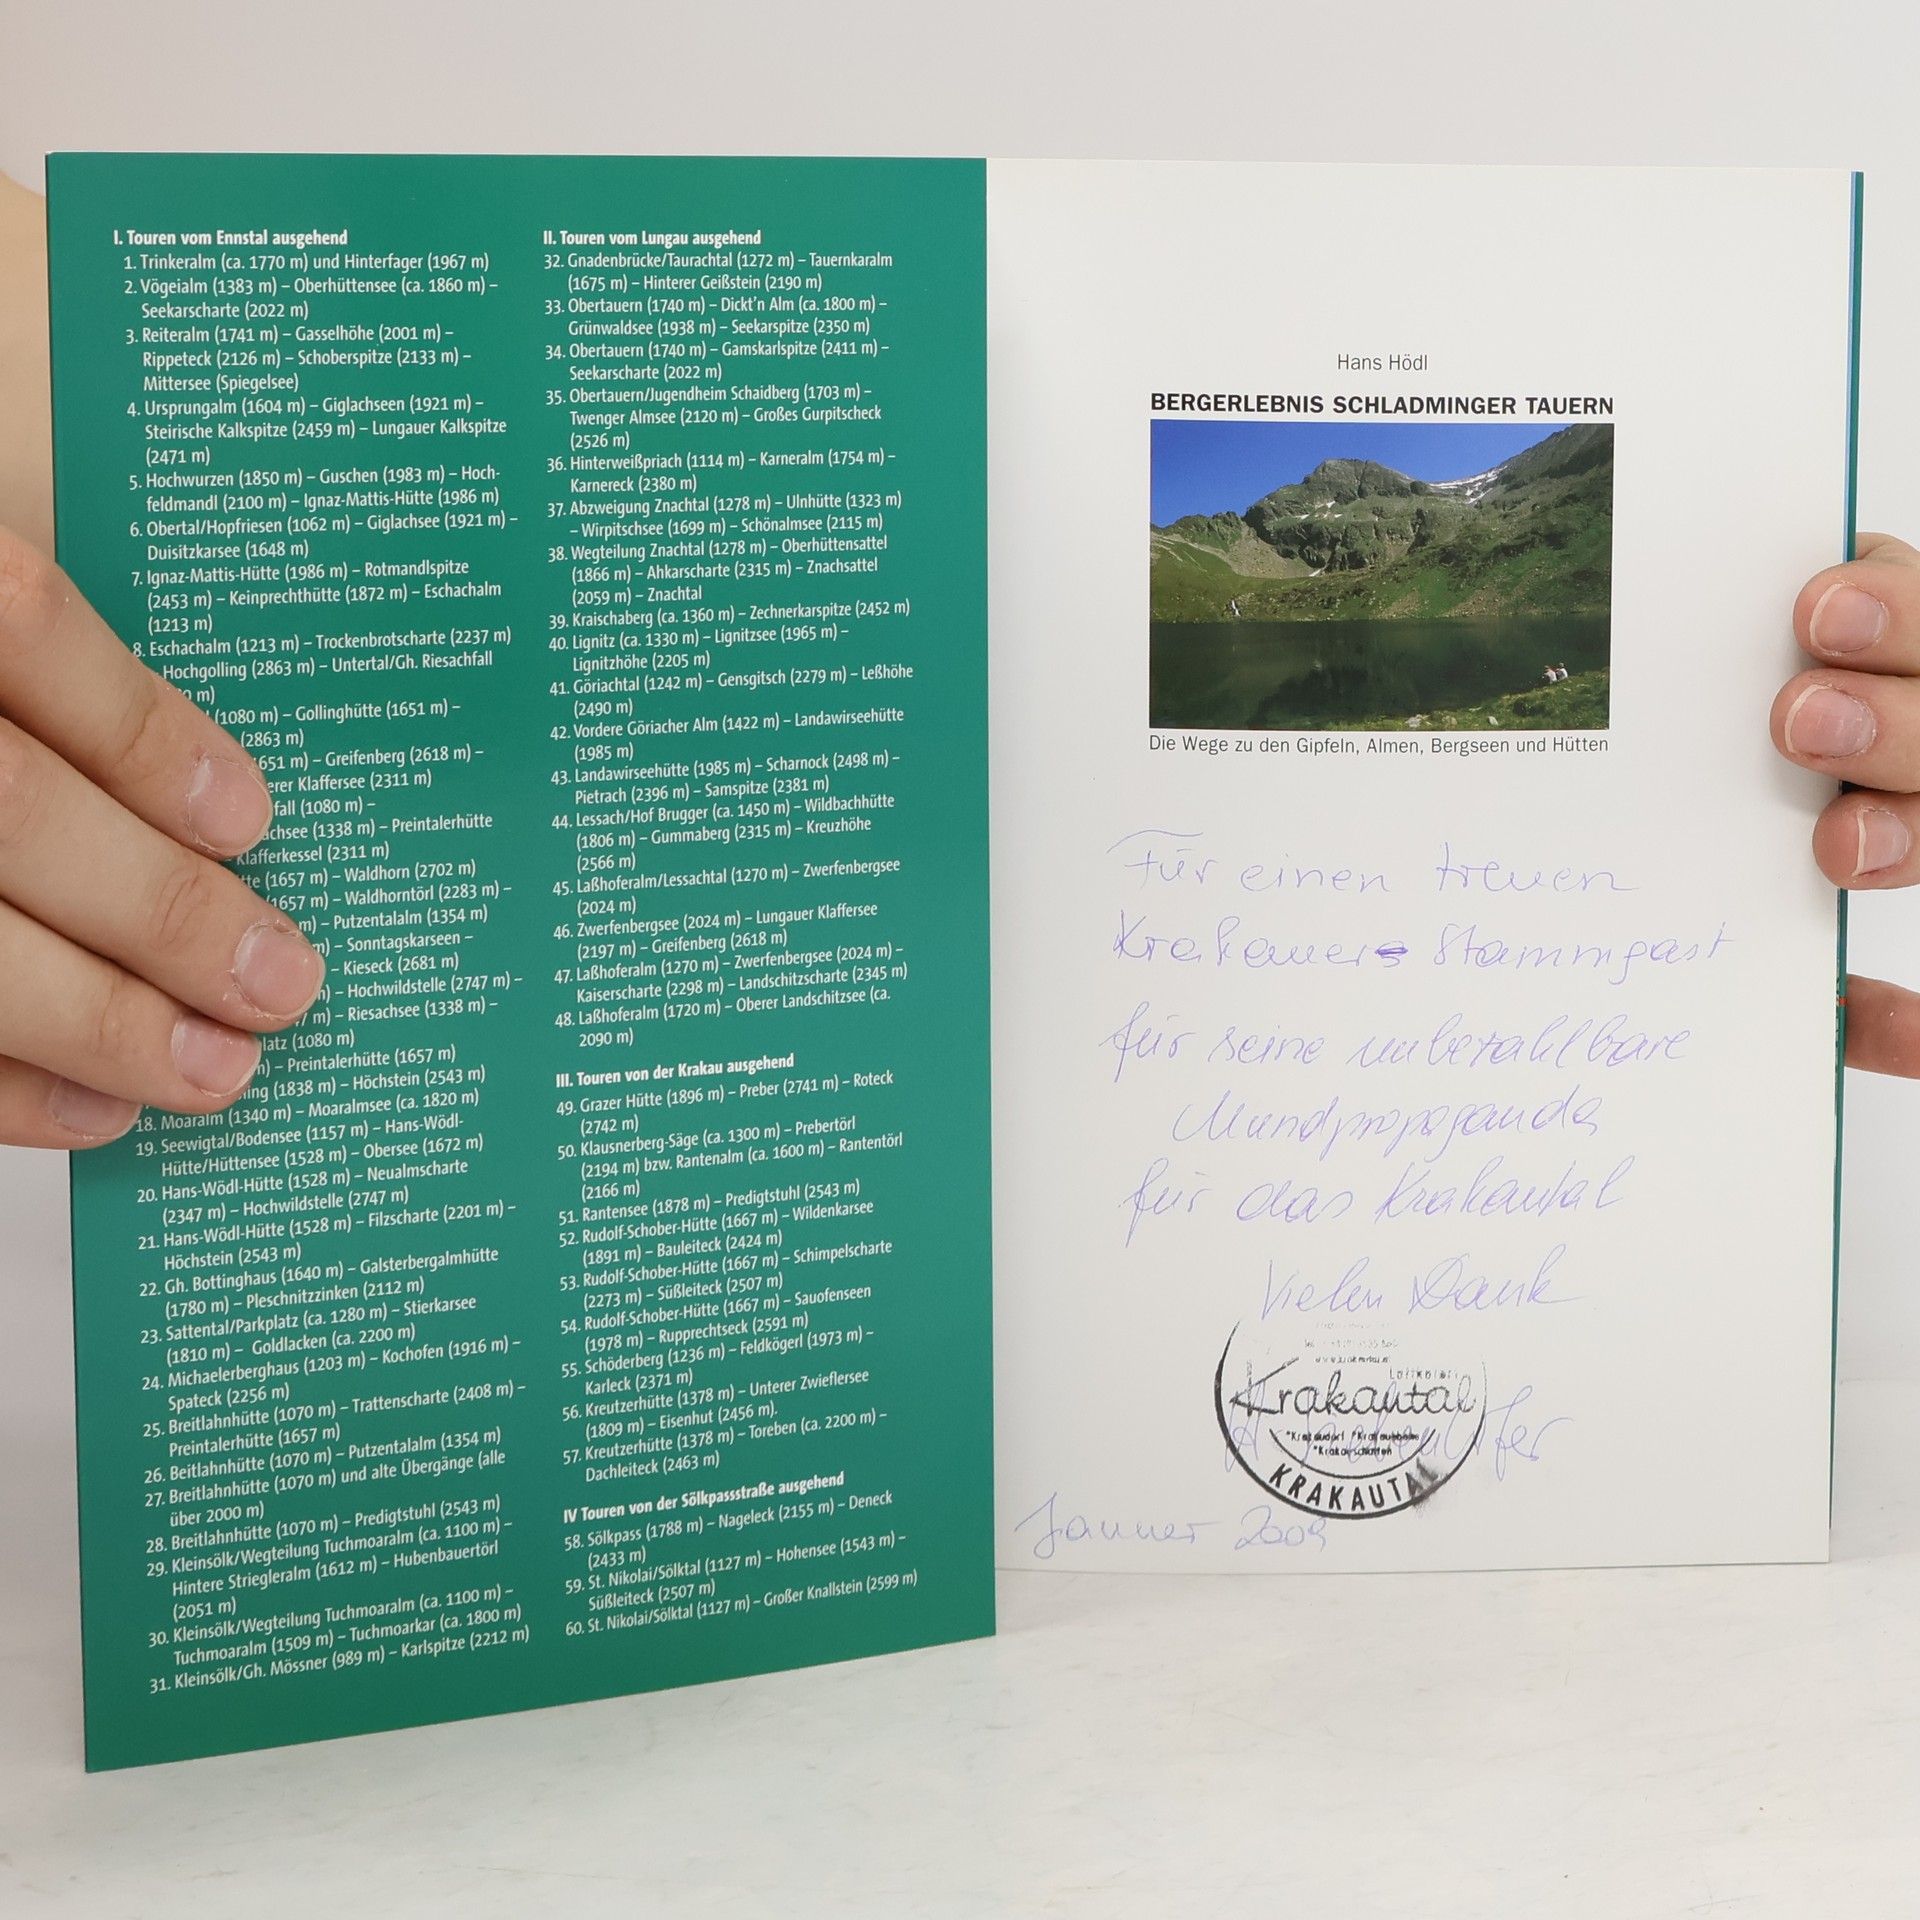 I. Touren vom Ennstal ausgehend
1. Trinkeralm (ca. 1770 m) und Hinterfager (1967 m)
2. Vögeialm (1383 m) – Oberhüttensee (ca. 1860 m) –
Seekarscharte (2022 m)
3. Reiteralm (1741 m) – Gasselhöhe (2001 m) –
Rippeteck (2126 m) – Schoberspitze (2133 m) –
Mittersee (Spiegelsee)
4. Ursprungalm (1604 m) – Giglachseen (1921 m) –
Steirische Kalkspitze (2459 m) – Lungauer Kalkspitze
(2471 m)
5. Hochwurzen (1850 m) – Guschen (1983 m) – Hoch-
feldmandl (2100 m) – Ignaz-Mattis-Hütte (1986 m)
6. Obertal/Hopfriesen (1062 m) – Giglachsee (1921 m) –
Duisitzkarsee (1648 m)
7. Ignaz-Mattis-Hütte (1986 m) – Rotmandlspitze
(2453 m) – Keinprechthütte (1872 m) – Eschachalm
(1213 m)
8. Eschachalm (1213 m) – Trockenbrotscharte (2237 m)
– Hochgolling (2863 m) – Untertal/Gh. Riesachfall
m)
(1080 m) – Gollinghütte (1651 m) –
(2863 m)
– Greifenberg (2618 m) –
Klaffersee (2311 m)
(1080 m) –
(1338 m) – Preintalerhütte
Klafferkessel (2311 m)
(1657 m) – Waldhorn (2702 m)
(1657 m) – Waldhorntörl (2283 m) –
m) – Putzentalalm (1354 m)
– Sonntagskarseen –
– Kieseck (2681 m)
– Hochwildstelle (2747 m) –
m) – Riesachsee (1338 m) –
(1080 m)
– Preintalerhütte (1657 m)
(1838 m) – Höchstein (2543 m)
18. Moaralm (1340 m) – Moaralmsee (ca. 1820 m)
19. Seewigtal/Bodensee (1157 m) – Hans-Wödl-
Hütte/Hüttensee (1528 m) – Obersee (1672 m)
20. Hans-Wödl-Hütte (1528 m) – Neualmscharte
(2347 m) – Hochwildstelle (2747 m)
21. Hans-Wödl-Hütte (1528 m) – Filzscharte (2201 m) –
Höchstein (2543 m)
22. Gh. Bottinghaus (1640 m) – Galsterbergalmhütte
(1780 m) – Pleschnitzzinken (2112 m)
23. Sattental/Parkplatz (ca. 1280 m) – Stierkarsee
(1810 m) – Goldlacken (ca. 2200 m)
24. Michaelerberghaus (1203 m) – Kochofen (1916 m) –
Spateck (2256 m)
25. Breitlahnhütte (1070 m) – Trattenscharte (2408 m) –
Preintalerhütte (1657 m)
26. Beitlahnhütte (1070 m) – Putzentalalm (1354 m)
27. Breitlahnhütte (1070 m) und alte Übergänge (alle
über 2000 m)
28. Breitlahnhütte (1070 m) – Predigtstuhl (2543 m)
29. Kleinsölk/Wegteilung Tuchmoaralm (ca. 1100 m) –
Hintere Striegleralm (1612 m) – Hubenbauertörl
(2051 m)
30. Kleinsölk/Wegteilung Tuchmoaralm (ca. 1100 m) –
Tuchmoaralm (1509 m) – Tuchmoarkar (ca. 1800 m)
31. Kleinsölk/Gh. Mössner (989 m) – Karlspitze (2212 m)
II. Touren vom Lungau ausgehend
32. Gnadenbrücke/Taurachtal (1272 m) – Tauernkaralm
(1675 m) – Hinterer Geißstein (2190 m)
33. Obertauern (1740 m) – Dickt'n Alm (ca. 1800 m) –
Grünwaldsee (1938 m) – Seekarspitze (2350 m)
34. Obertauern (1740 m) – Gamskarlspitze (2411 m) –
Seekarscharte (2022 m)
35. Obertauern/Jugendheim Schaidberg (1703 m) –
Twenger Almsee (2120 m) – Großes Gurpitscheck
(2526 m)
36. Hinterweißpriach (1114 m) – Karneralm (1754 m) –
Karnereck (2380 m)
37. Abzweigung Znachtal (1278 m) – Ulnhütte (1323 m)
– Wirpitschsee (1699 m) – Schönalmsee (2115 m)
38. Wegteilung Znachtal (1278 m) – Oberhüttensattel
(1866 m) – Ahkarscharte (2315 m) – Znachsattel
(2059 m) – Znachtal
39. Kraischaberg (ca. 1360 m) – Zechnerkarspitze (2452 m)
40. Lignitz (ca. 1330 m) – Lignitzsee (1965 m) –
Lignitzhöhe (2205 m)
41. Göriachtal (1242 m) – Gensgitsch (2279 m) – Leßhöhe
(2490 m)
42. Vordere Göriacher Alm (1422 m) – Landawirseehütte
(1985 m)
43. Landawirseehütte (1985 m) – Scharnock (2498 m) –
Pietrach (2396 m) – Samspitze (2381 m)
44. Lessach/Hof Brugger (ca. 1450 m) – Wildbachhütte
(1806 m) – Gummaberg (2315 m) – Kreuzhöhe
(2566 m)
45. Laßhoferalm/Lessachtal (1270 m) – Zwerfenbergsee
(2024 m)
46. Zwerfenbergsee (2024 m) – Lungauer Klaffersee
(2197 m) – Greifenberg (2618 m)
47. Laßhoferalm (1270 m) – Zwerfenbergsee (2024 m) –
Kaiserscharte (2298 m) – Landschitzscharte (2345 m)
48. Laßhoferalm (1720 m) – Oberer Landschitzsee (ca.
2090 m)
III. Touren von der Krakau ausgehend
49. Grazer Hütte (1896 m) – Preber (2741 m) – Roteck
(2742 m)
50. Klausnerberg-Säge (ca. 1300 m) – Prebertörl
(2194 m) bzw. Rantenalm (ca. 1600 m) – Rantentörl
(2166 m)
51. Rantensee (1878 m) – Predigtstuhl (2543 m)
52. Rudolf-Schober-Hütte (1667 m) – Wildenkarsee
(1891 m) – Bauleiteck (2424 m)
53. Rudolf-Schober-Hütte (1667 m) – Schimpelscharte
(2273 m) – Süßleiteck (2507 m)
54. Rudolf-Schober-Hütte (1667 m) – Sauofenseen
(1978 m) – Rupprechtseck (2591 m)
55. Schöderberg (1236 m) – Feldkögerl (1973 m) –
Karleck (2371 m)
56. Kreutzerhütte (1378 m) – Unterer Zwieflersee
(1809 m) – Eisenhut (2456 m).
57. Kreutzerhütte (1378 m) – Toreben (ca. 2200 m) –
Dachleiteck (2463 m)
IV Touren von der Sölkpassstraße ausgehend
58. Sölkpass (1788 m) – Nageleck (2155 m) – Deneck
(2433 m)
59. St. Nikolai/Sölktal (1127 m) – Hohensee (1543 m) –
Süßleiteck (2507 m)
60. St. Nikolai/Sölktal (1127 m) – Großer Knallstein (2599 m)
Hans Hödl
BERGERLEBNIS SCHLADMINGER TAUERN
Die Wege zu den Gipfeln, Almen, Bergseen und Hütten
Für einen treuen
Krakauer Stammgast
für seine unbezahlbare
Mundpropaganda
für das Krakautal
Vielen Dank
Krakautal
KRAKAUTAL
Jänner 2009